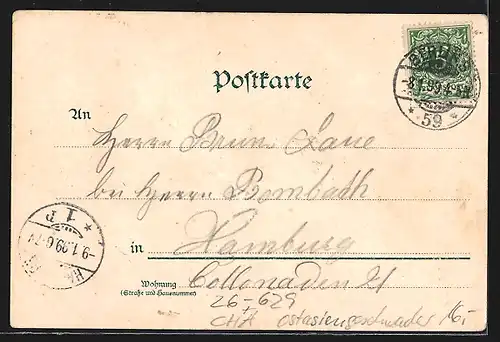 Postkarte
An
Herrn Bruno Laue
bei Herrn Bombach
in Hamburg
Wohnung
(Straße und Hausnummer)
Collonaden 21
26-629
CHA Ostasiengeschwader 16.-
5
BERLIN
8.1.99.4-5N
* 59 *
* 1 P *
-9.1.99.6-7V